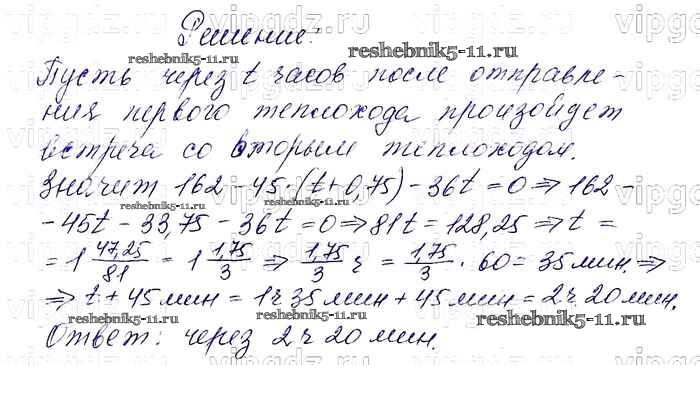 Решение:
Пусть через t часов после отправле-
ния первого теплохода произойдет
встреча со вторым теплоходом.
Значит 162 - 45 · (t + 0,75) - 36t = 0 ⇒ 162 -
- 45t - 33,75 - 36t = 0 ⇒ 81t = 128,25 ⇒ t =
= 1 47,25/81 = 1 1,75/3 ⇒ 1,75/3 ч = 1,75/3 · 60 = 35 мин. ⇒
⇒ t + 45 мин = 1 ч 35 мин + 45 мин = 2 ч. 20 мин.
Ответ: через 2 ч 20 мин.
reshebnik5-11.ru
reshebnik5-11.ru
reshebnik5-11.ru
reshebnik5-11.ru
reshebnik5-11.ru
reshebnik5-11.ru
reshebnik5-11.ru
reshebnik5-11.ru
vipgdz.ru